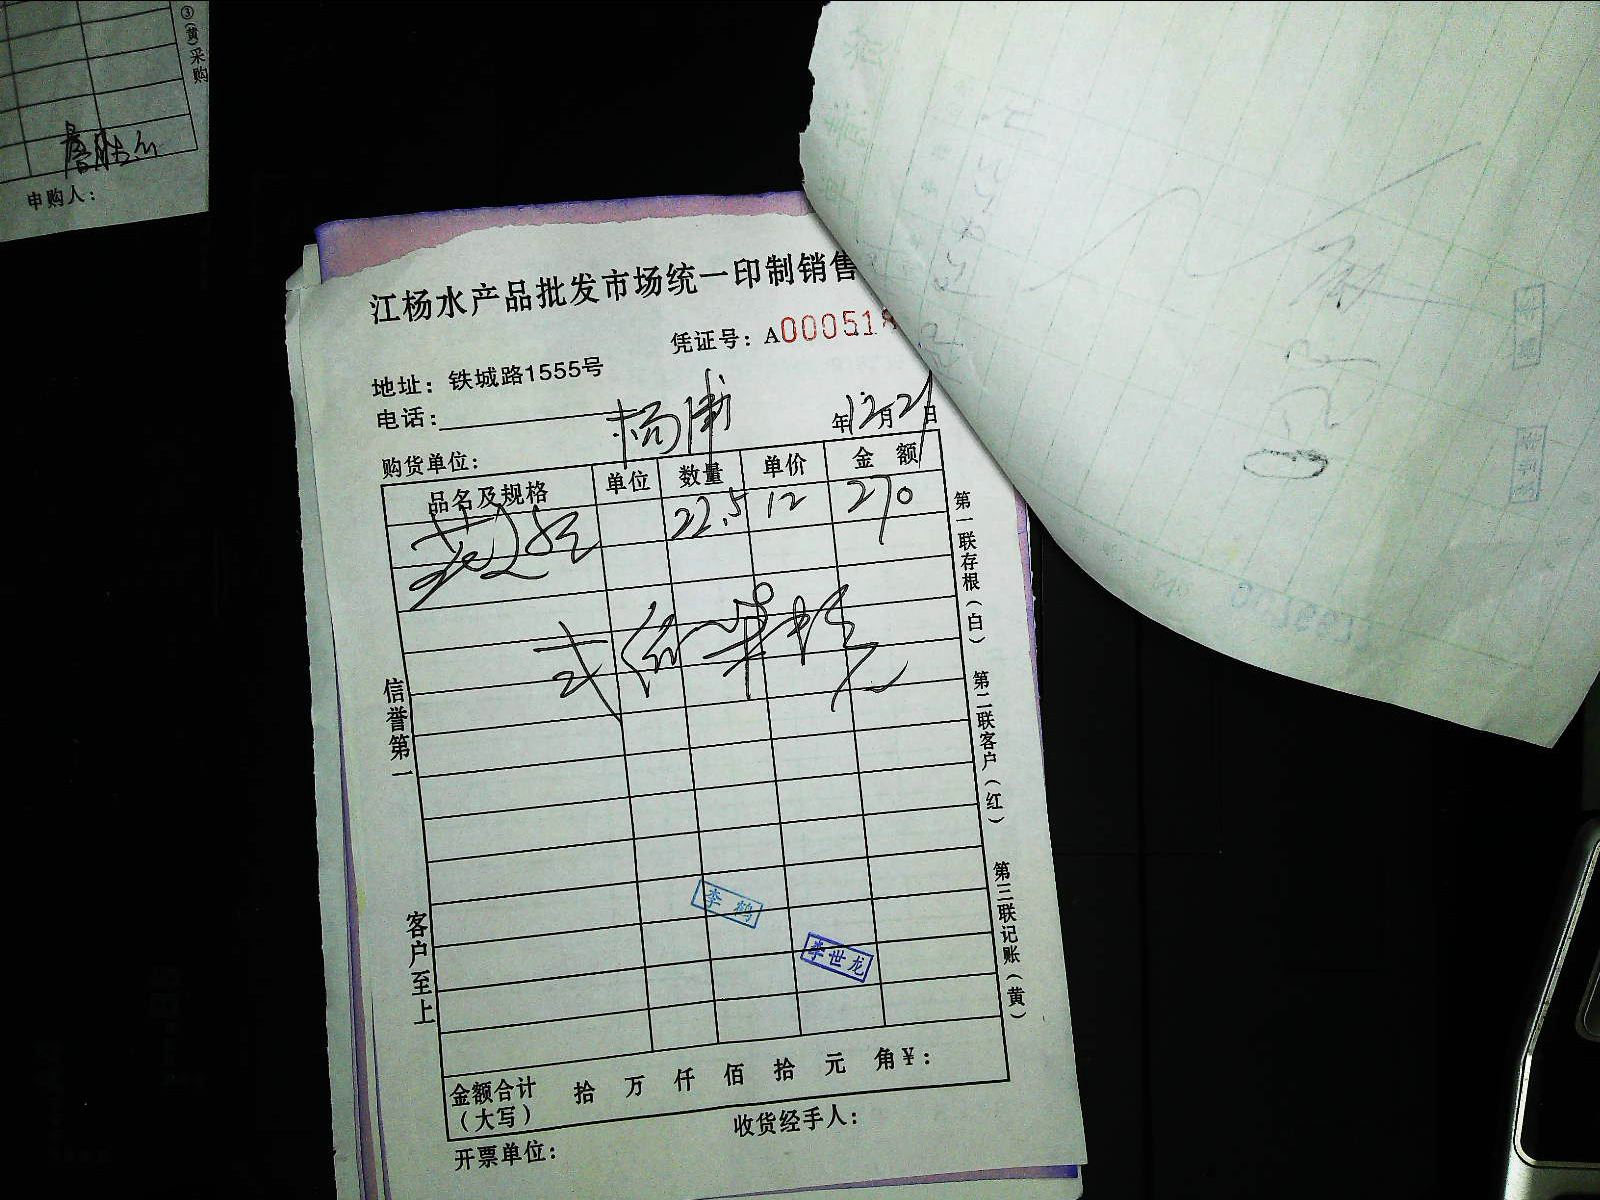 ③(黄)采购
申购人：
江杨水产品批发市场统一印制销售
凭证号：A000518
地址：铁城路1555号
电话：
年12月21日
购货单位：杨浦
品名及规格 单位 数量 单价 金额
22.5 12 270
贰佰柒拾元
信誉第一
客户至上
第一联存根（白）
第二联客户（红）
第三联记账（黄）
李鹤
李世龙
金额合计（大写） 拾 万 仟 佰 拾 元 角¥：
收货经手人：
开票单位：